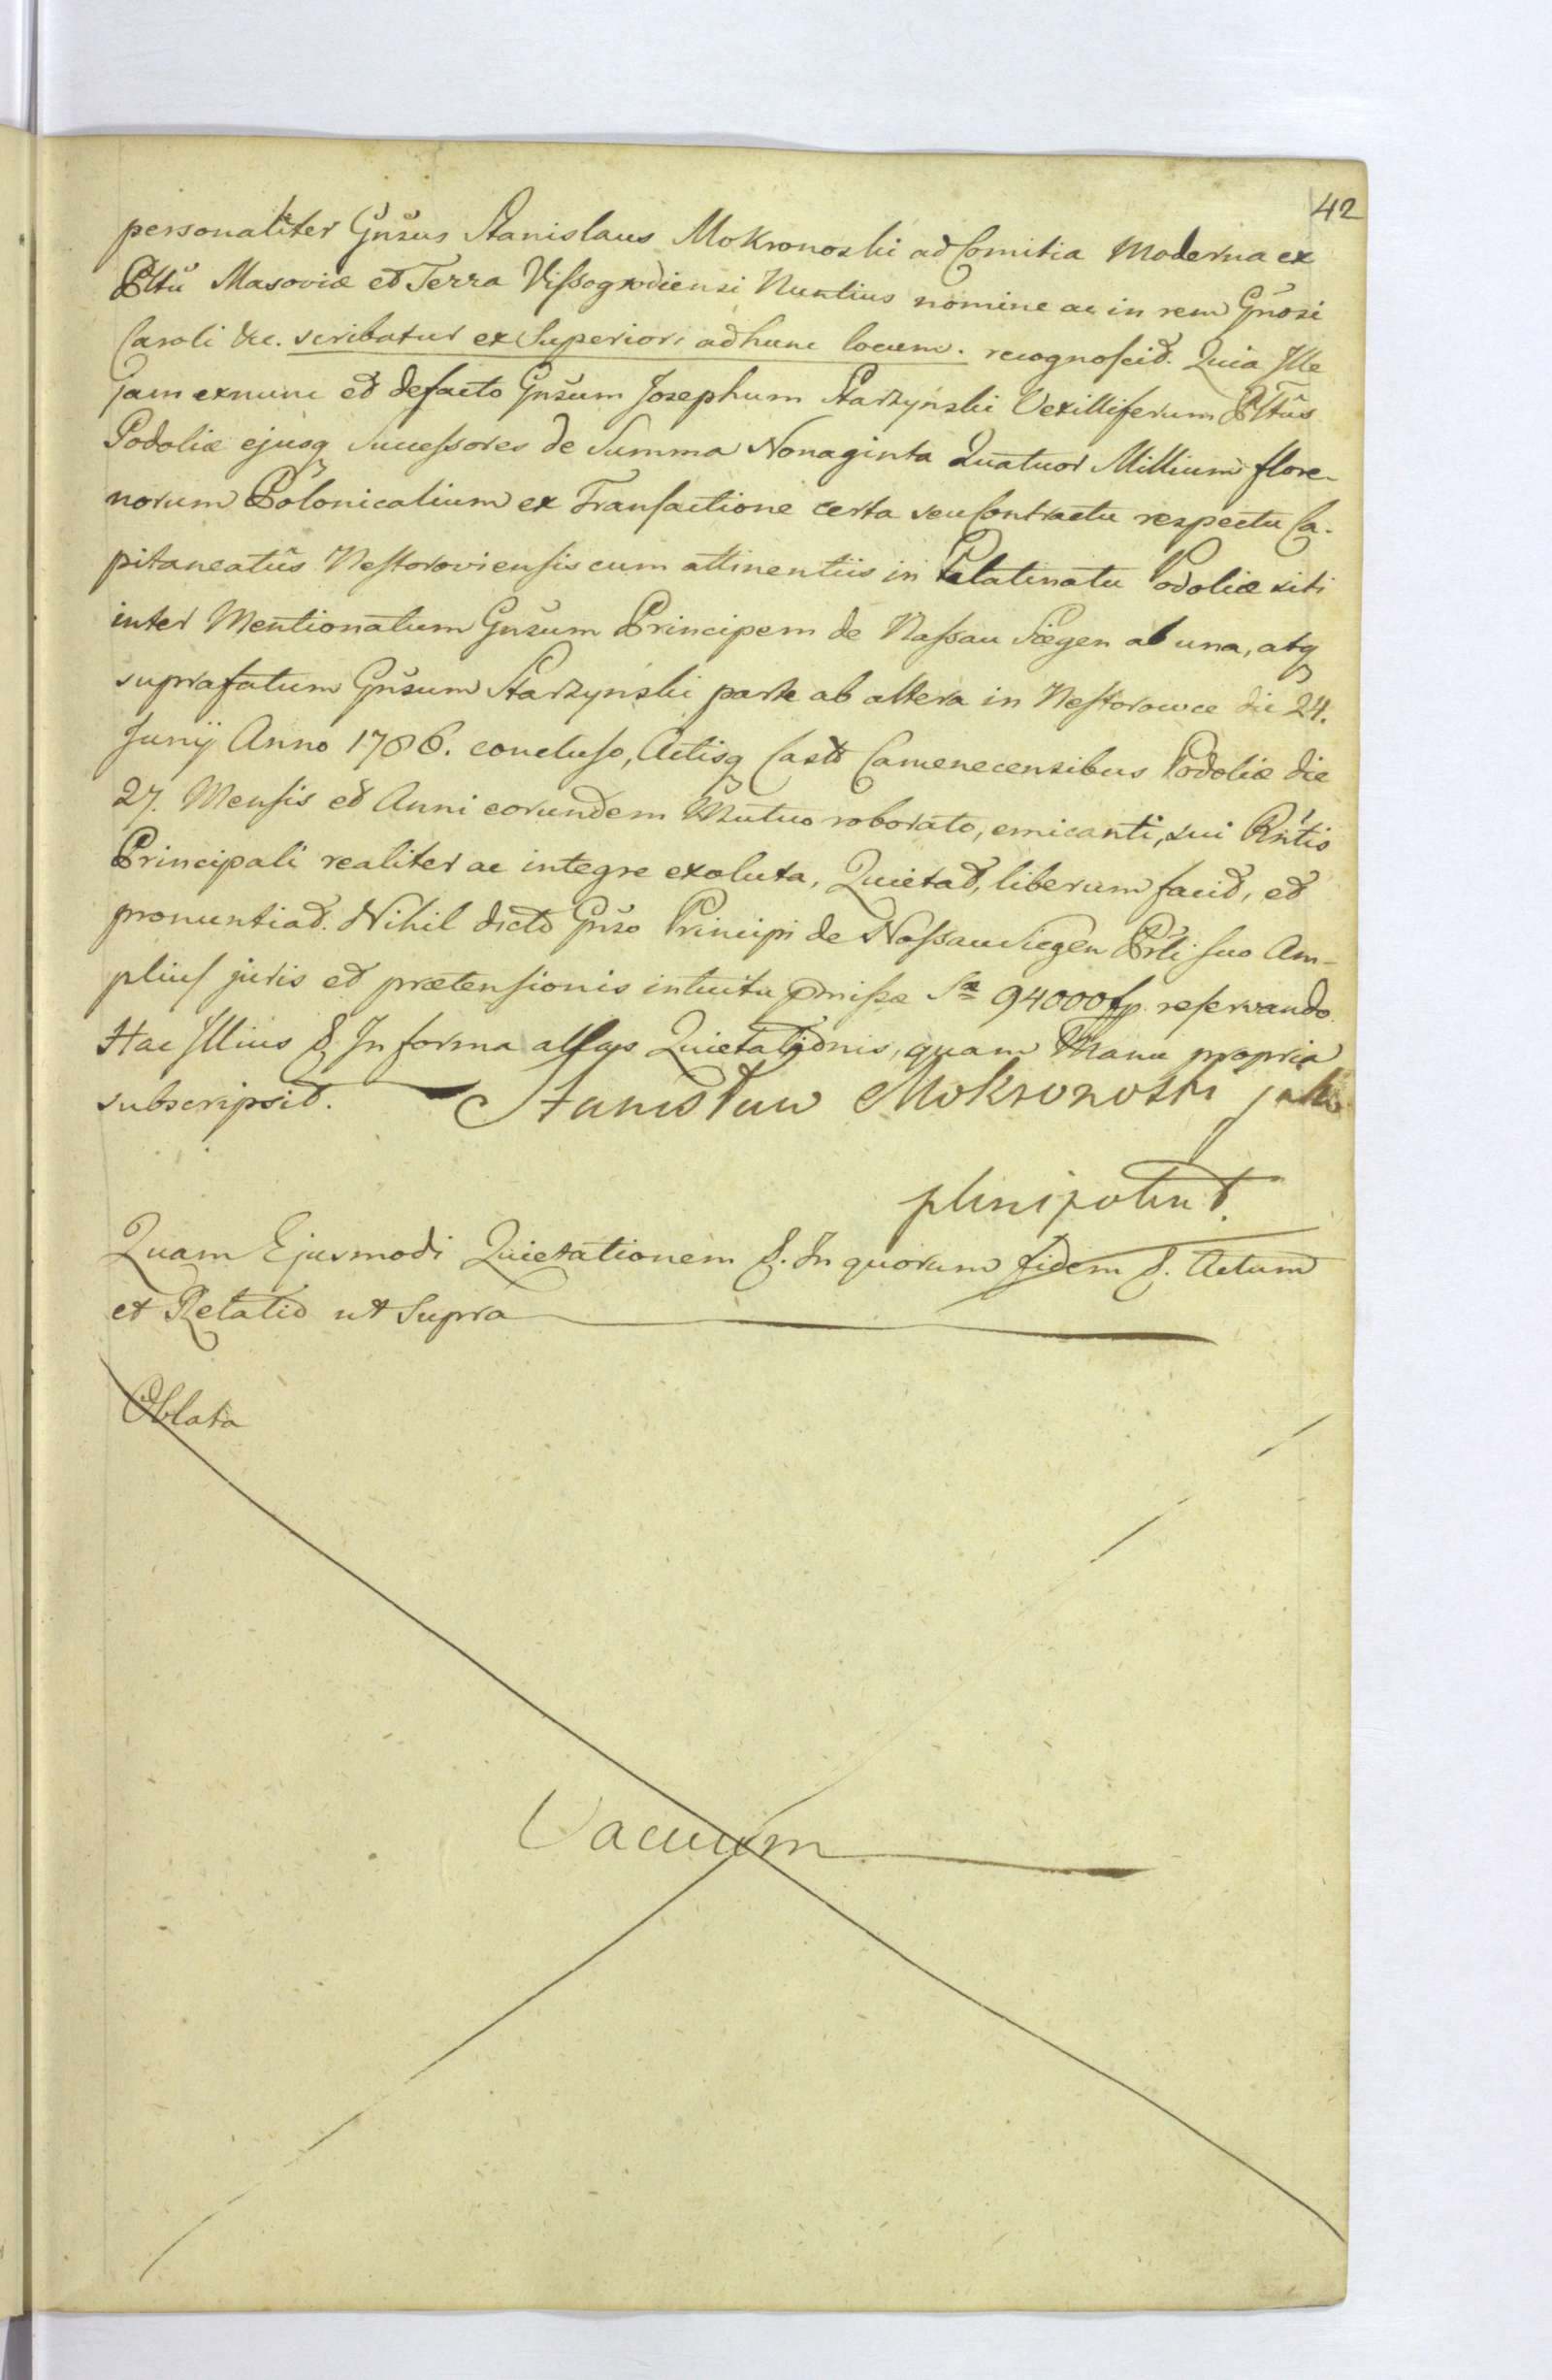 42
personaliter Gnsus Stanislaus Mokronoski ad Comitia Moderna ex
Plttu Masoviæ et Terra Vissogrodiensi Nuntius nomine ac in rem Gnosi
Caroli &c. scribatur ex Superiori ad hunc locum. recognoscit. Quia Ille
jam ex nunc et de facto Gnsum Josephum Starzyński Vexilliferum Plttûs
Podoliæ ejusq Successores de Summa Nonaginta Quatuor Millium flore-
norum Polonicalium ex Transactione certa seu Contractu respectu Ca-
pitaneatûs Nestoroviensis cum attinentiis in Palatinatu Podoliæ siti
inter Mentionatum Gnsum Principem de Nassau Siegen ab una, atq
suprafatum Gnsum Starzyński parte ab altera in Nestorowce die 24.
Junij Anno 1786. concluso, Actisq Castr Camenecensibus Podoliæ die
27. Mensis et Anni eorundem Mutuo roborato, emicanti, sui
Principali realiter ac integre exoluta, Quietat, liberum facit, et
pronuntiat. Nihil dicto Gnso Principi de Nassau Siegen Prli suo Am-
plius juris et prætensionis intuitu pmissæ Sæ 94000 fp. reservando.
Hac Illius &. In forma Quietationis, quam Manu propria
subscripsit. Stanisław Mokronoski jako
plenipotent.
Quam Ejusmodi Quietationem &. In quorum fidem &. Actum
et Relatio ut Supra
Oblata
Vacuum